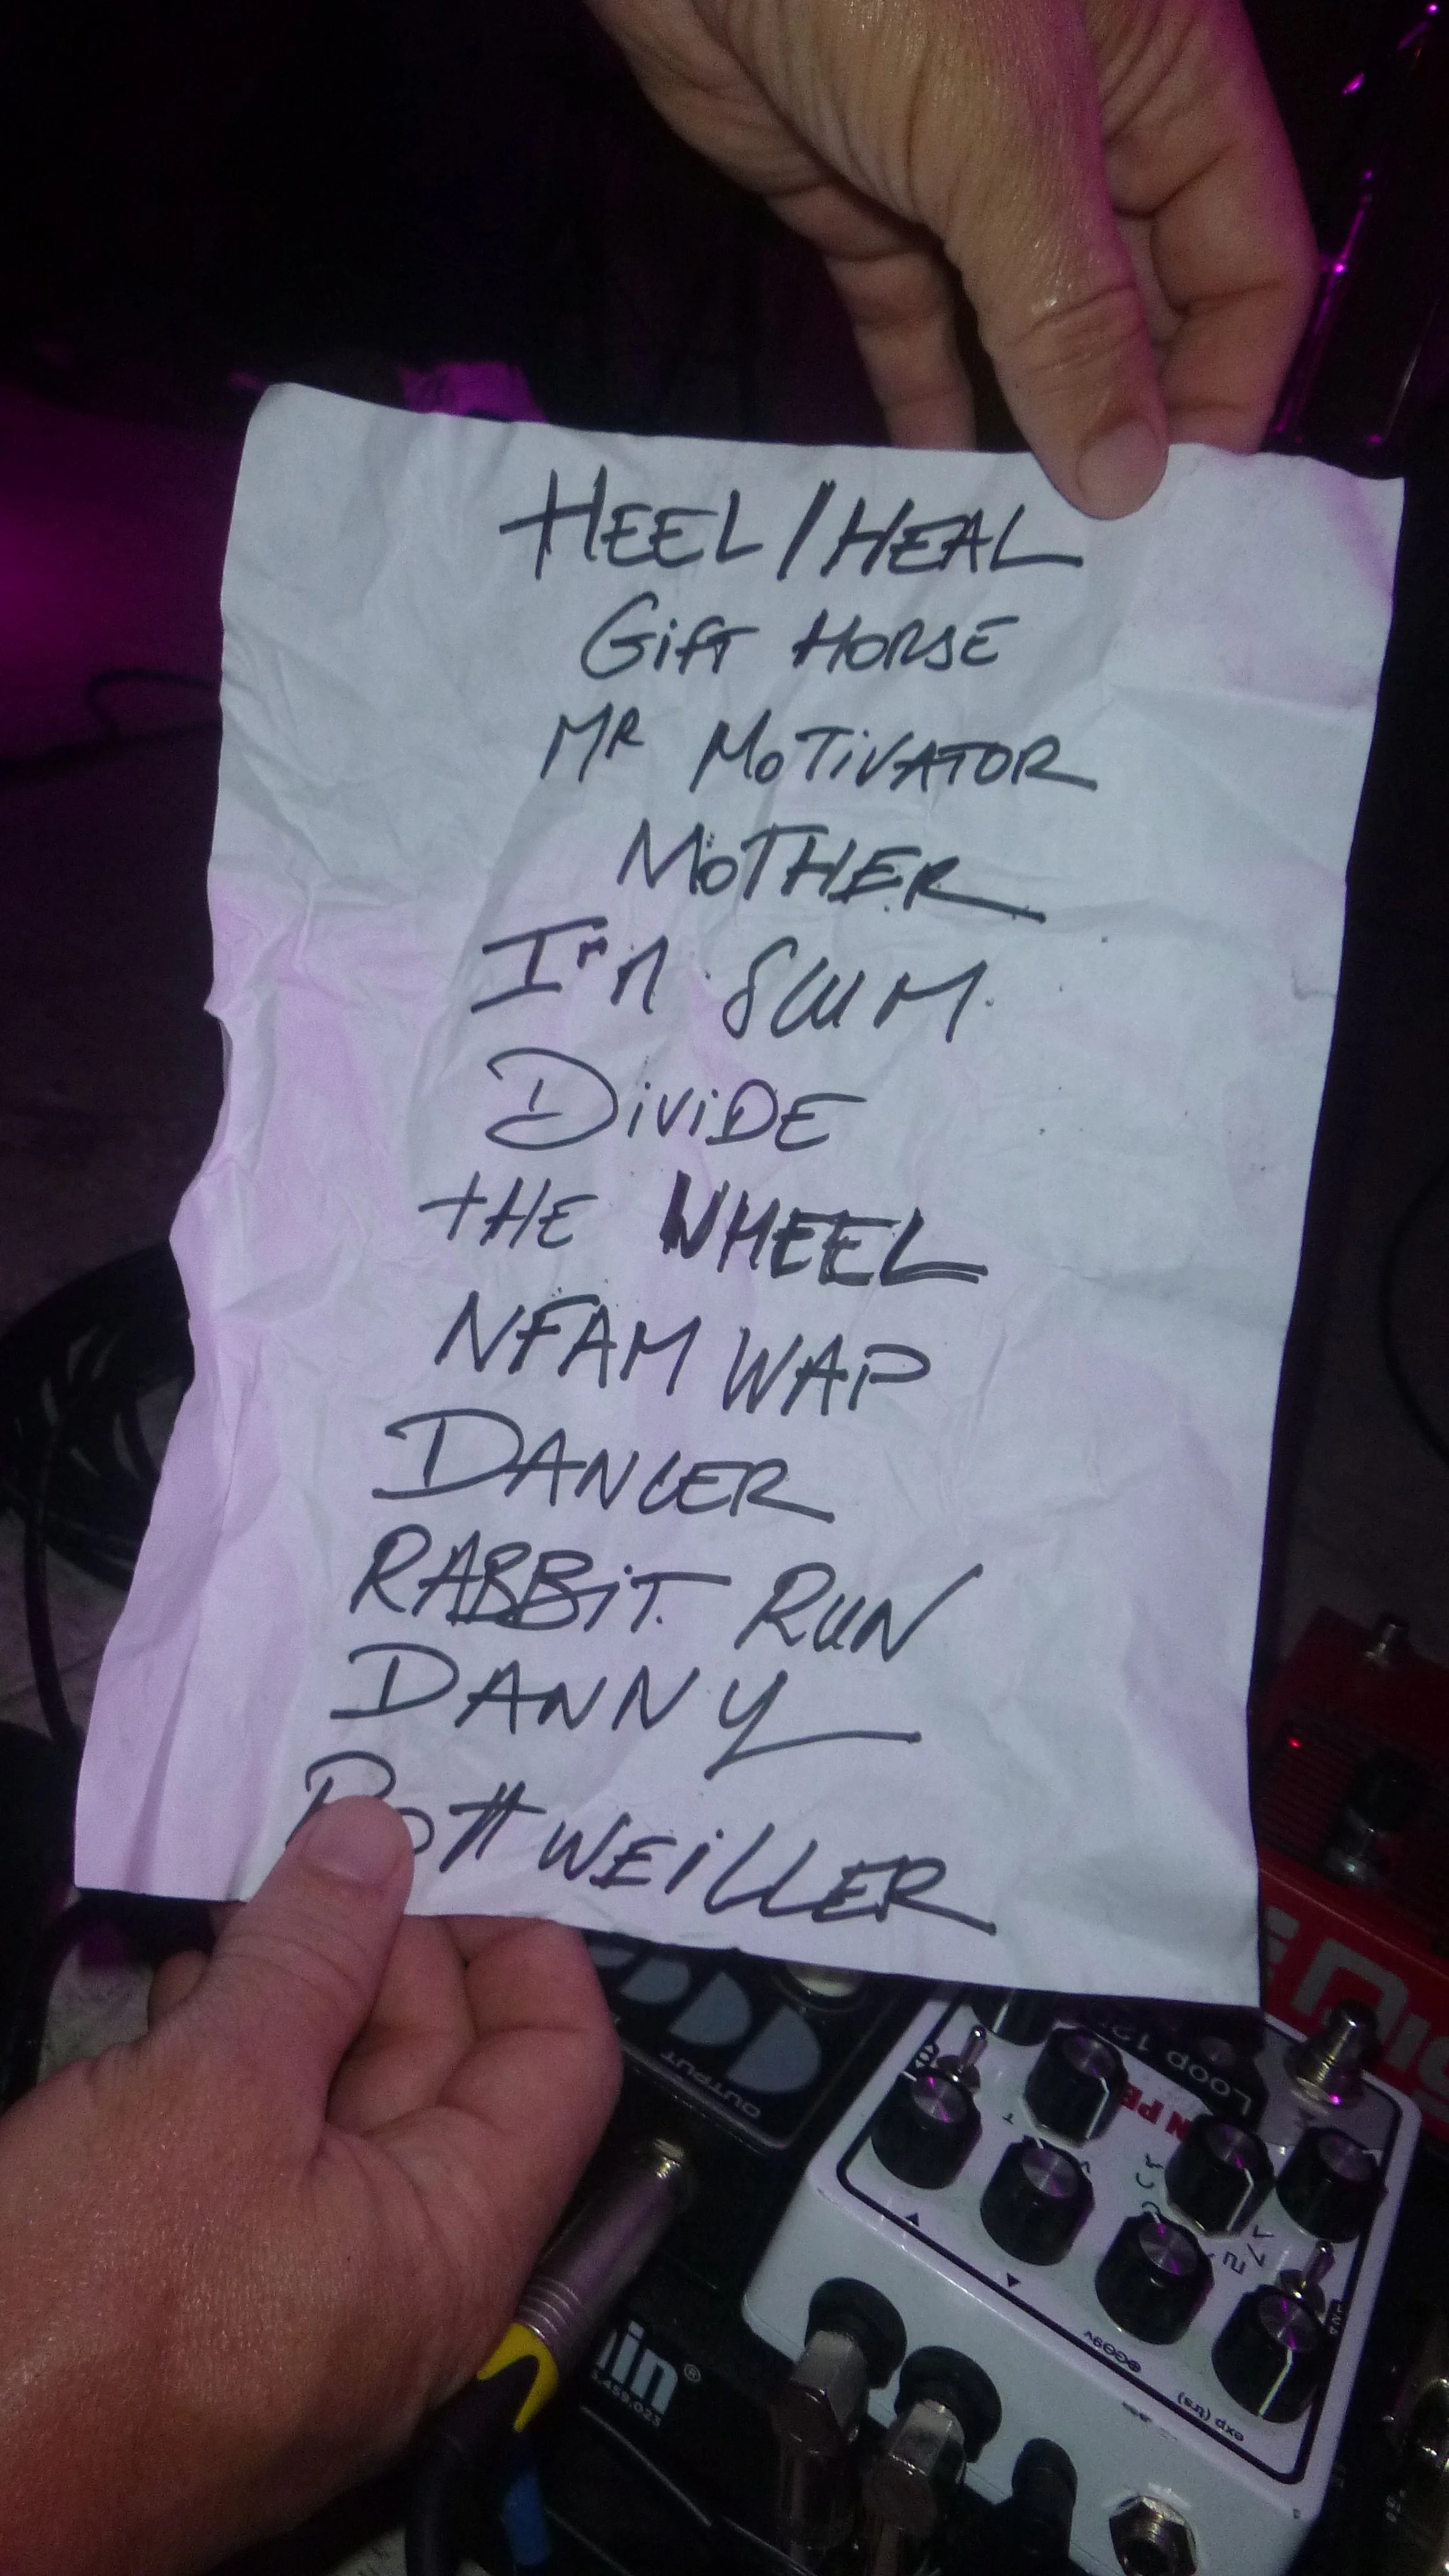 HEEL/HEAL
GiFT HORSE
MR MoTiVATOR
MoTHER
I'M SCUM
DiViDE
tHE WHEEL
NFAMWAP
DANCER
RABBiT RUN
DANNY
RottWEiLLER
OUTPUT
Loop
exp (trs)